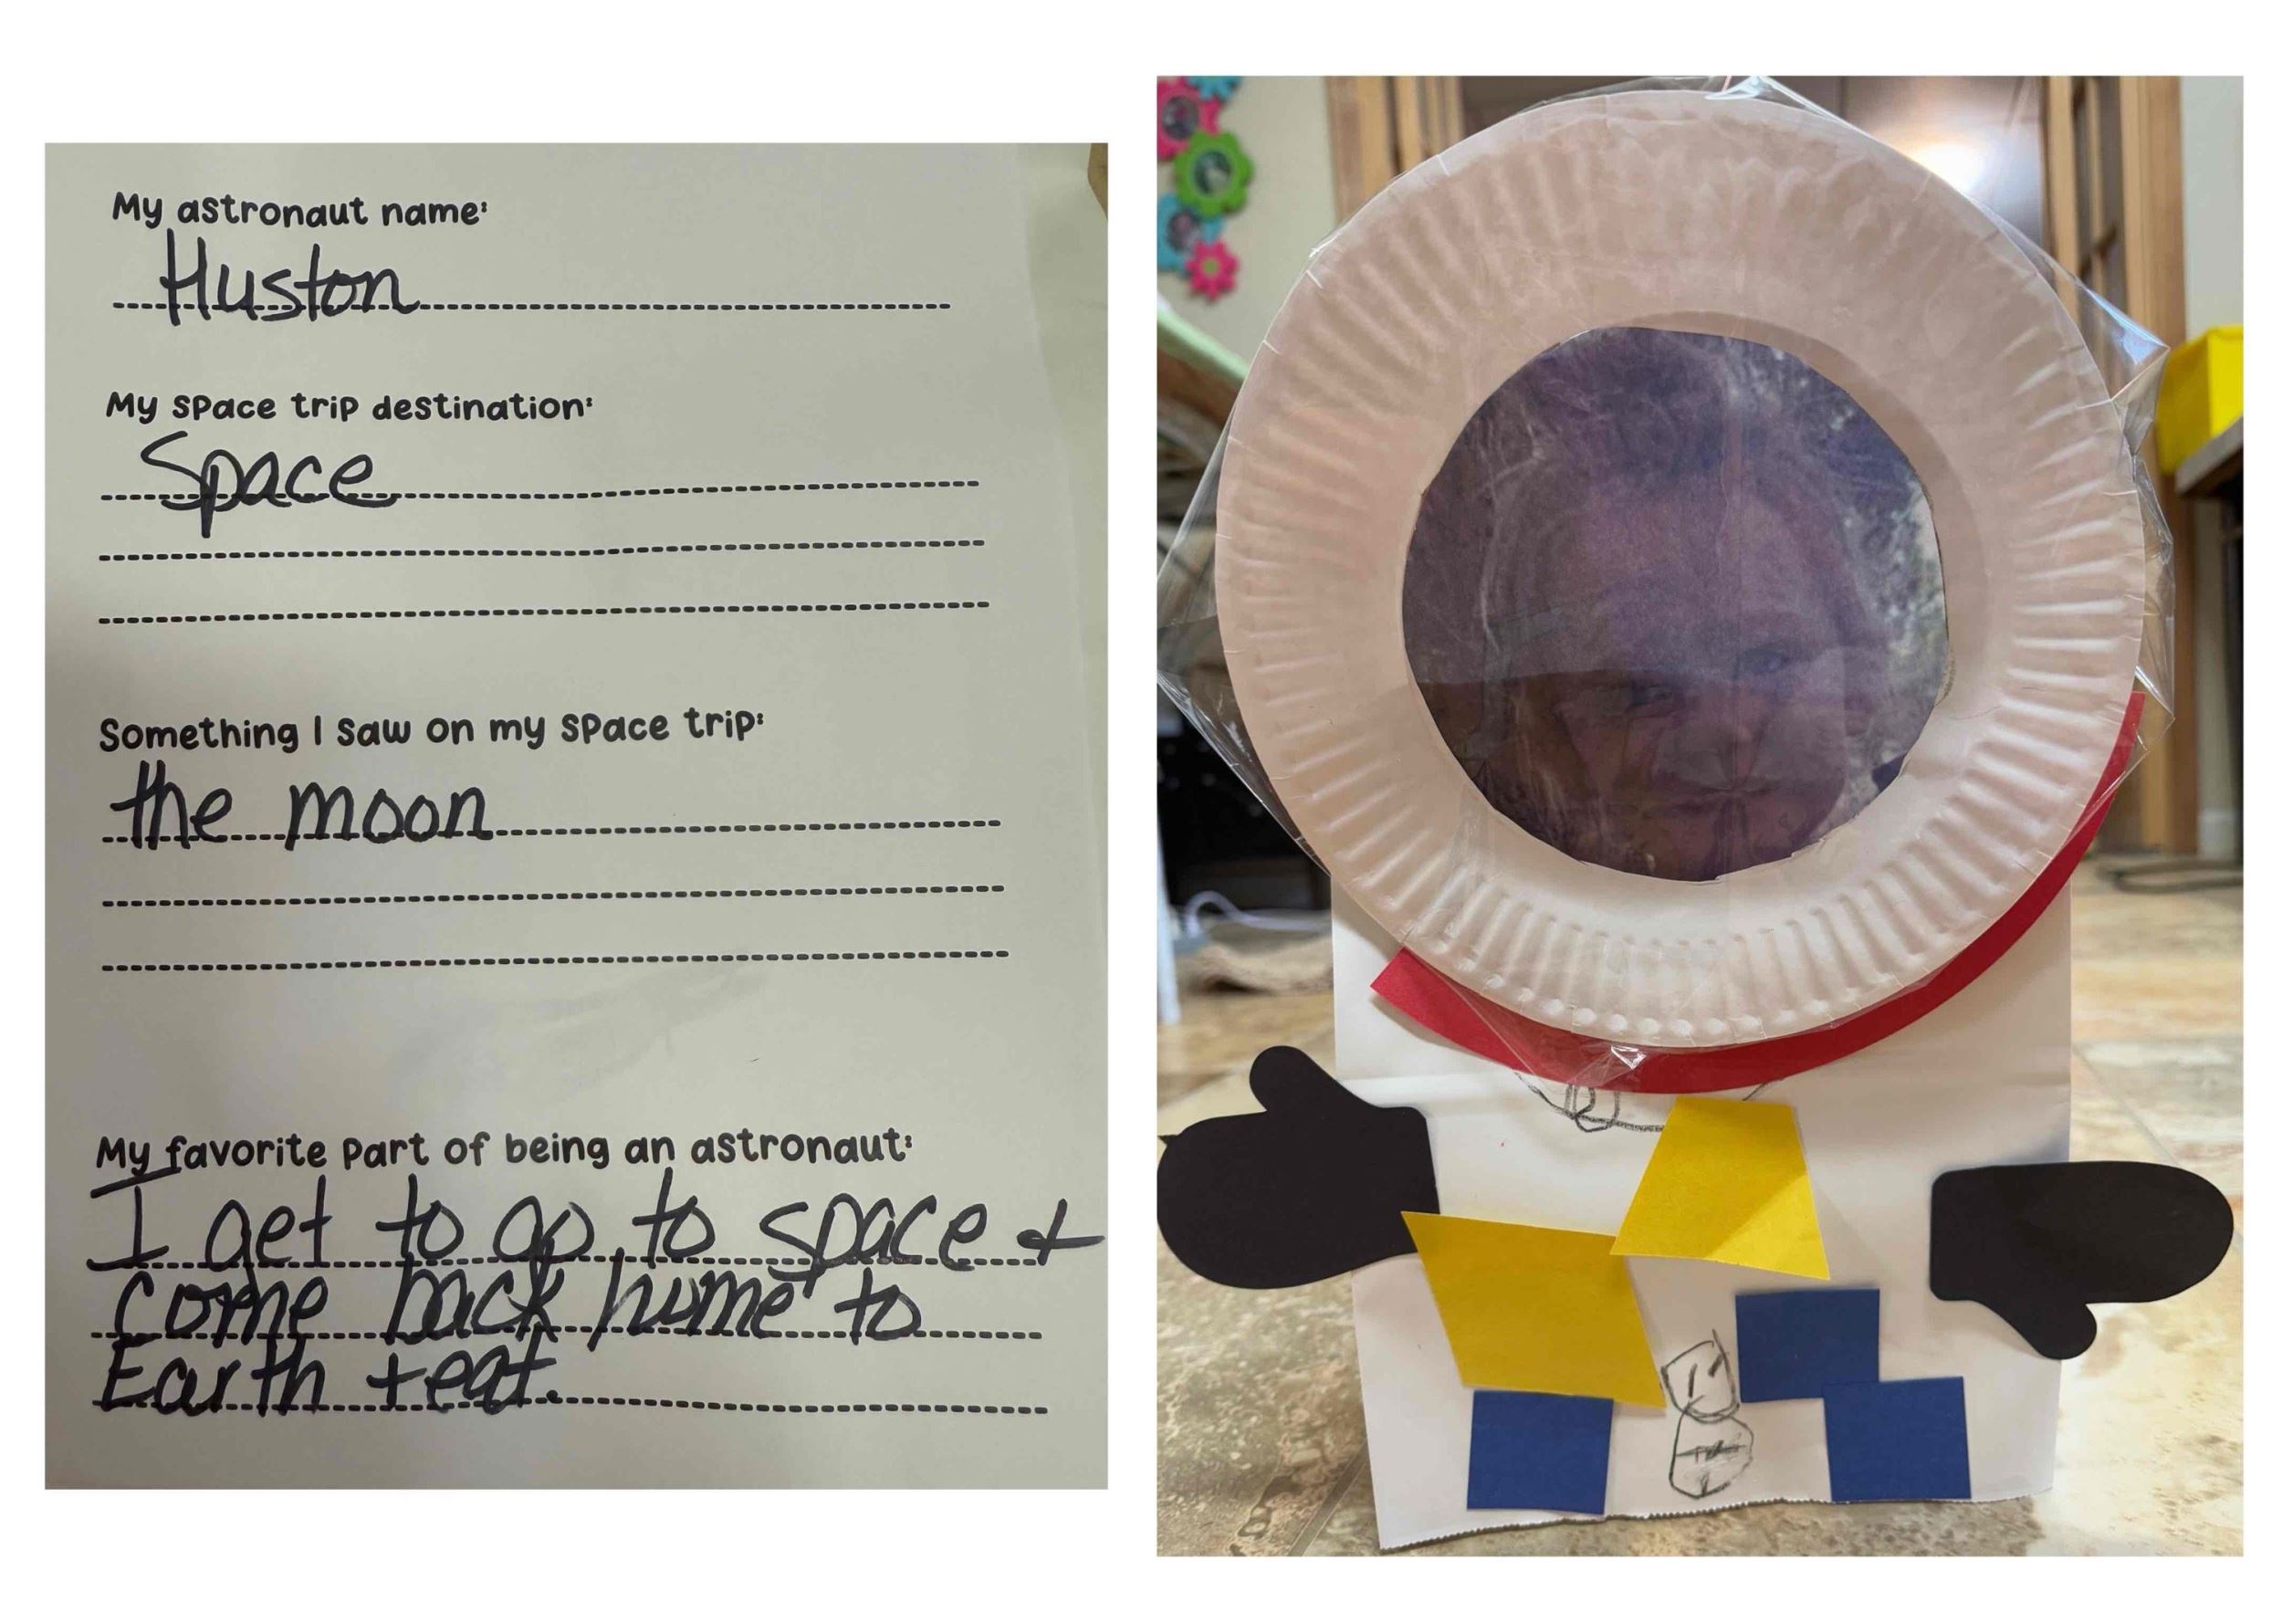 My astronaut name:
Huston
My space trip destination:
Space
Something I saw on my space trip:
the moon
My favorite part of being an astronaut:
I get to go to space +
come back home to
Earth + eat.